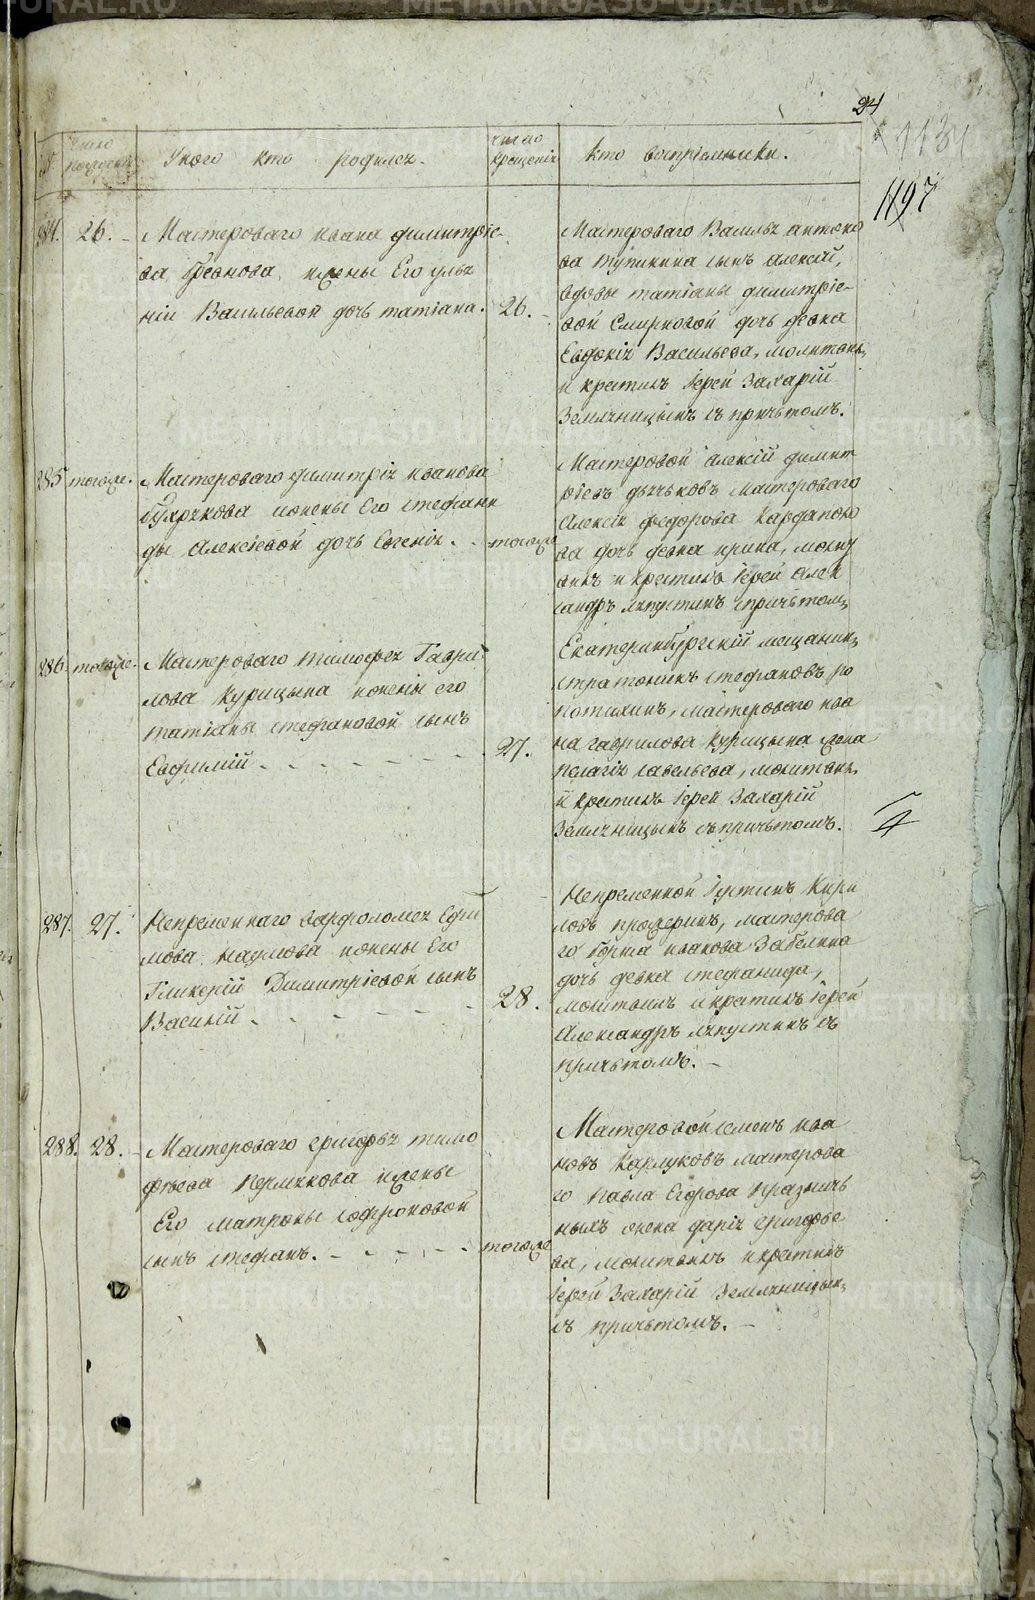 24
1197
число рожденія
У кого кто родился.
число крещенія
кто воспріемники.
284. 26.
Мастероваго Ивана димитріе-
ва женыЕго улья
ніи Васильевой дочь татіана.
26.
Мастероваго Василья антоно
ва тупикина сынъ алексій,
вдовы татіаны димитріе-
вой Смирновой дочь девка
Евдокія Васильева, молитвил,
и крестилъ Іерей Захарій
Земляницынъ съ причьтомъ.
285 тогоже.
Мастероваго димитрія иванова
ижены Его стефани
ды Алексіевой дочь Евгенія.
тогоже
Мастеровой алексій димит
ріевъ дьячьковъ Мастероваго
Алексія федорова
ва дочь девка ирина, молит
вилъ и крестилъ Іерей алек
сандръ ляпустинъ спричьтом,
286. тогоже.
Мастероваго тимофея Гаври
лова Курицына ижены его
татіаны стефановой сынъ
Евфимій
27.
Екатеринбургскій мещанин,
стратоникъ стефановъ ро
потихинъ, мастероваго ива
на гаврилова Курицына жена
пелагія савельева, молитвил,
и крестилъ Іерей Захарій
Земляницынъ съпричьтомъ.
287. 27.
Непременнаго варфоломея Ефи
мова Наумова ижены Его
Гликеріи Димитріевой сынъ
Василій
28.
Непременной Іустинъ Кири
ловъ мастерова
го иванова Забелина
дочь девка стефанида,
молитвилъ и крестилъ Іерей
Александръ ляпустинъ съ
причьтомъ.
288. 28.
Мастероваго григорья тимо
феева Пермякова ижены
Его матроны софроновой
сынъ стефанъ.
тогоже
Мастеровой семенъ ива
новъ Карлуковъ мастерова
го Павла Егорова
ныхъ жена дарія григорье
ва, молитвилъ и крестилъ
Іерей Захарій Земляницын,
съ причьтомъ.